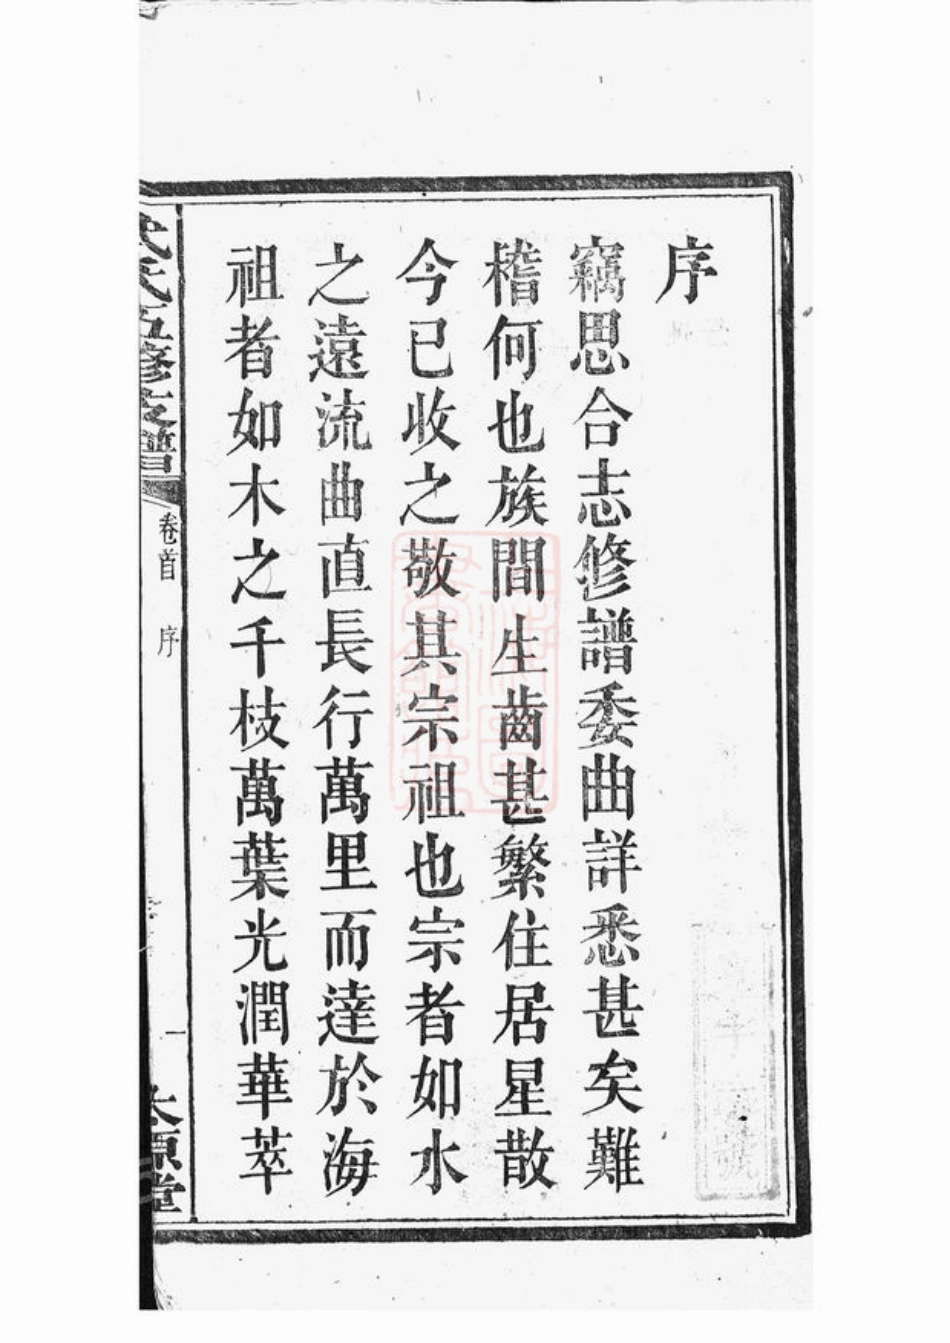 序
竊思合志修譜委曲詳悉甚矣難
稽何也族間生齒甚繁住居星散
今已收之敬其宗祖也宗者如水
之遠流曲直長行萬里而達於海
祖者如木之千枝萬葉光潤華萃
氏五修支譜
卷首
序
一
太原堂